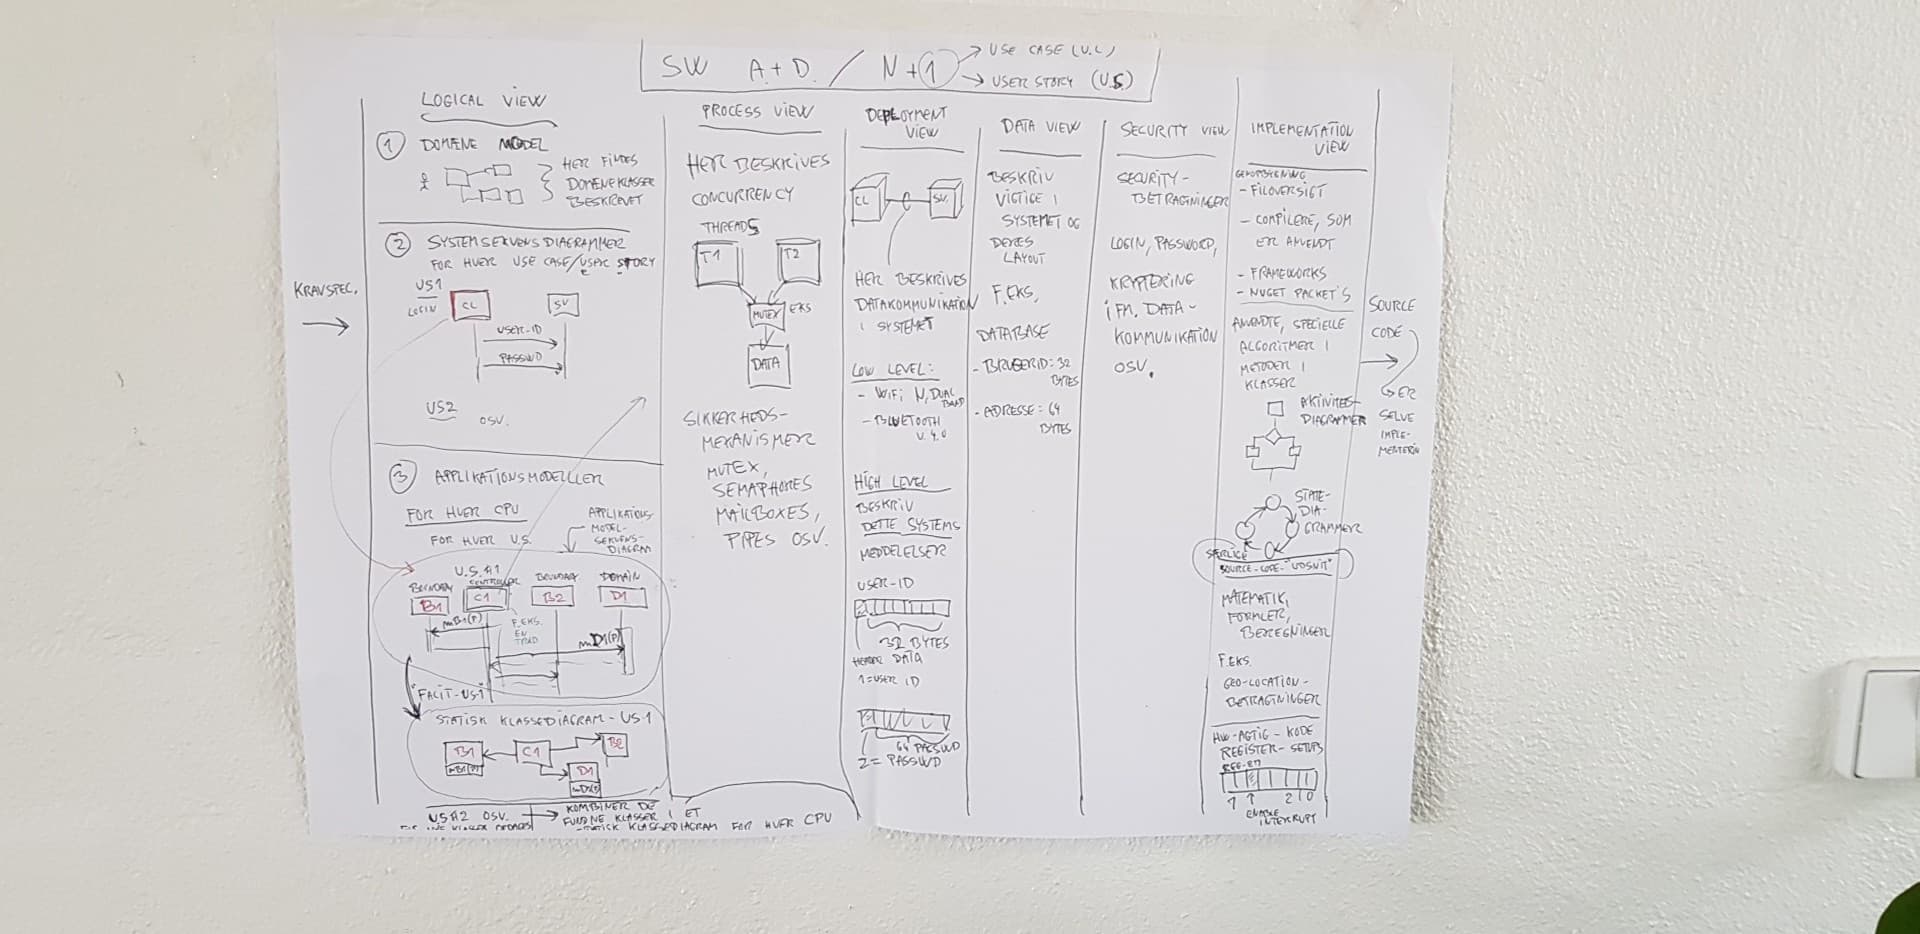 SW A+D. / N+1
USE CASE (U.C)
USER STORY (U.S)
KRAVSPEC.
LOGICAL VIEW
1 DOMÆNE MODEL
HER FINDES
DOMÆNEKLASSER
BESKREVET
2 SYSTEMSEKVENSDIAGRAMMER
FOR HVER USE CASE/USER STORY
US1
LOGIN
CL
SV
USER-ID
PASSWD
US2
OSV.
3 APPLIKATIONSMODELLER
FOR HVER CPU
FOR HVER U.S.
APPLIKATIONS-
MODEL-
SEKVENS-
DIAGRAM
U.S.#1
BOUNDARY
CONTROLLER
BOUNDARY
DOMAIN
B1
C1
B2
D1
mB1(P)
F.EKS.
EN
TRÅD
mD1(P)
"FACIT-US1"
STATISK KLASSEDIAGRAM-US1
B1
C1
B2
mB1(P)
D1
mD1(P)
US#2 OSV.
KOMBINER DE
FUNDNE KLASSER I ET
STATISK KLASSEDIAGRAM FOR HVER CPU
PROCESS VIEW
HER BESKRIVES
CONCURRENCY
THREADS
T1
T2
MUTEX
EKS
DATA
SIKKERHEDS-
MEKANISMER
MUTEX,
SEMAPHORES
MAILBOXES,
PIPES OSV.
DEPLOYMENT
VIEW
CL
SV.
HER BESKRIVES
DATAKOMMUNIKATION
I SYSTEMET
LOW LEVEL:
- WIFI N, DUAL
BAND
- BLUETOOTH
V. 4.0
HIGH LEVEL
BESKRIV
DETTE SYSTEMS
MEDDELELSER
USER-ID
32 BYTES
HEADER DATA
1=USER ID
64 PASSWD
2= PASSWD
DATA VIEW
BESKRIV
VIGTIGE I
SYSTEMET OG
DERES
LAYOUT
F.EKS.
DATABASE
- BRUGERID: 32
BYTES
- ADRESSE: 64
BYTES
SECURITY VIEW
SECURITY-
BETRAGTNINGER
LOGIN, PASSWORD,
KRYPTERING
IFM. DATA-
KOMMUNIKATION
OSV.
IMPLEMENTATION
VIEW
- FILOVERSIGT
- COMPILERE, SOM
ER ANVENDT
- FRAMEWORKS
- NUGET PACKET'S
ANVENDTE, SPECIELLE
ALGORITMER I
METODER I
KLASSER
AKTIVITETS-
DIAGRAMMER
STATE-
DIA-
GRAMMER
SÆRLIGE
SOURCE-CODE-"UDSNIT"
MATEMATIK,
FORMLER,
BEREGNINGER
F.EKS.
GEO-LOCATION-
BETRAGTNINGER
HW-AGTIG-KODE
REGISTER-SETUPS
7
2 1 0
ENABLE
INTERRUPT
SOURCE
CODE
ER
SELVE
IMPLE-
MENTERIN